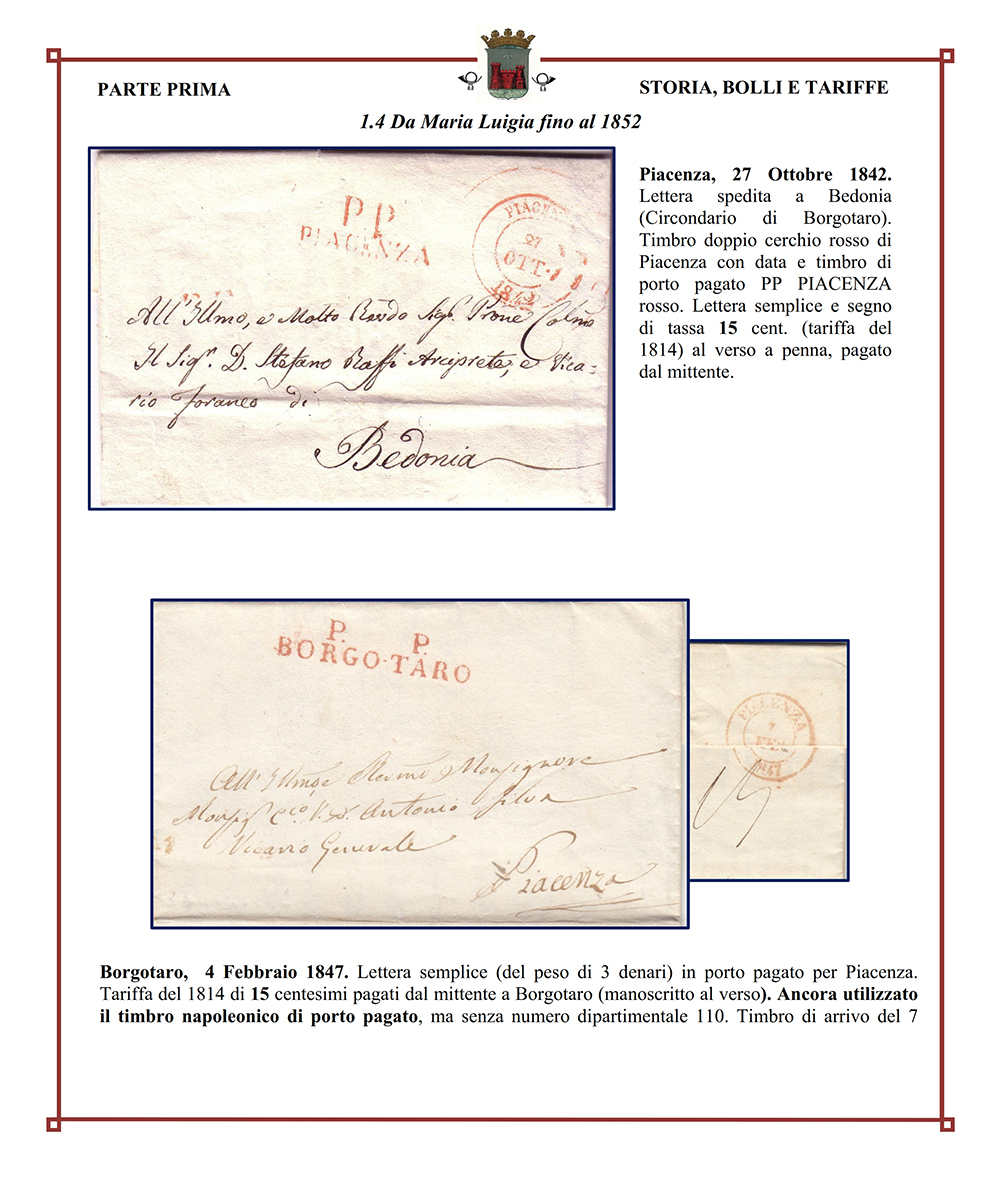 PARTE PRIMA
STORIA, BOLLI E TARIFFE
1.4 Da Maria Luigia fino al 1852
P.P.
PIACENZA
PIACENZA
27
OTT.
1842
All' Illmo, e Molto Revdo Sigr. Prone Colmo
Il Sigr. D. Stefano Raffi Arciprete, e Vica-
rio foraneo di
Bedonia
Piacenza, 27 Ottobre 1842.
Lettera spedita a Bedonia
(Circondario di Borgotaro).
Timbro doppio cerchio rosso di
Piacenza con data e timbro di
porto pagato PP PIACENZA
rosso. Lettera semplice e segno
di tassa 15 cent. (tariffa del
1814) al verso a penna, pagato
dal mittente.
P. P.
BORGO-TARO
Monsignore
Antonio Silva
Vicario Generale
Piacenza
PIACENZA
7
FEB
1847
15
Borgotaro, 4 Febbraio 1847. Lettera semplice (del peso di 3 denari) in porto pagato per Piacenza.
Tariffa del 1814 di 15 centesimi pagati dal mittente a Borgotaro (manoscritto al verso). Ancora utilizzato
il timbro napoleonico di porto pagato, ma senza numero dipartimentale 110. Timbro di arrivo del 7